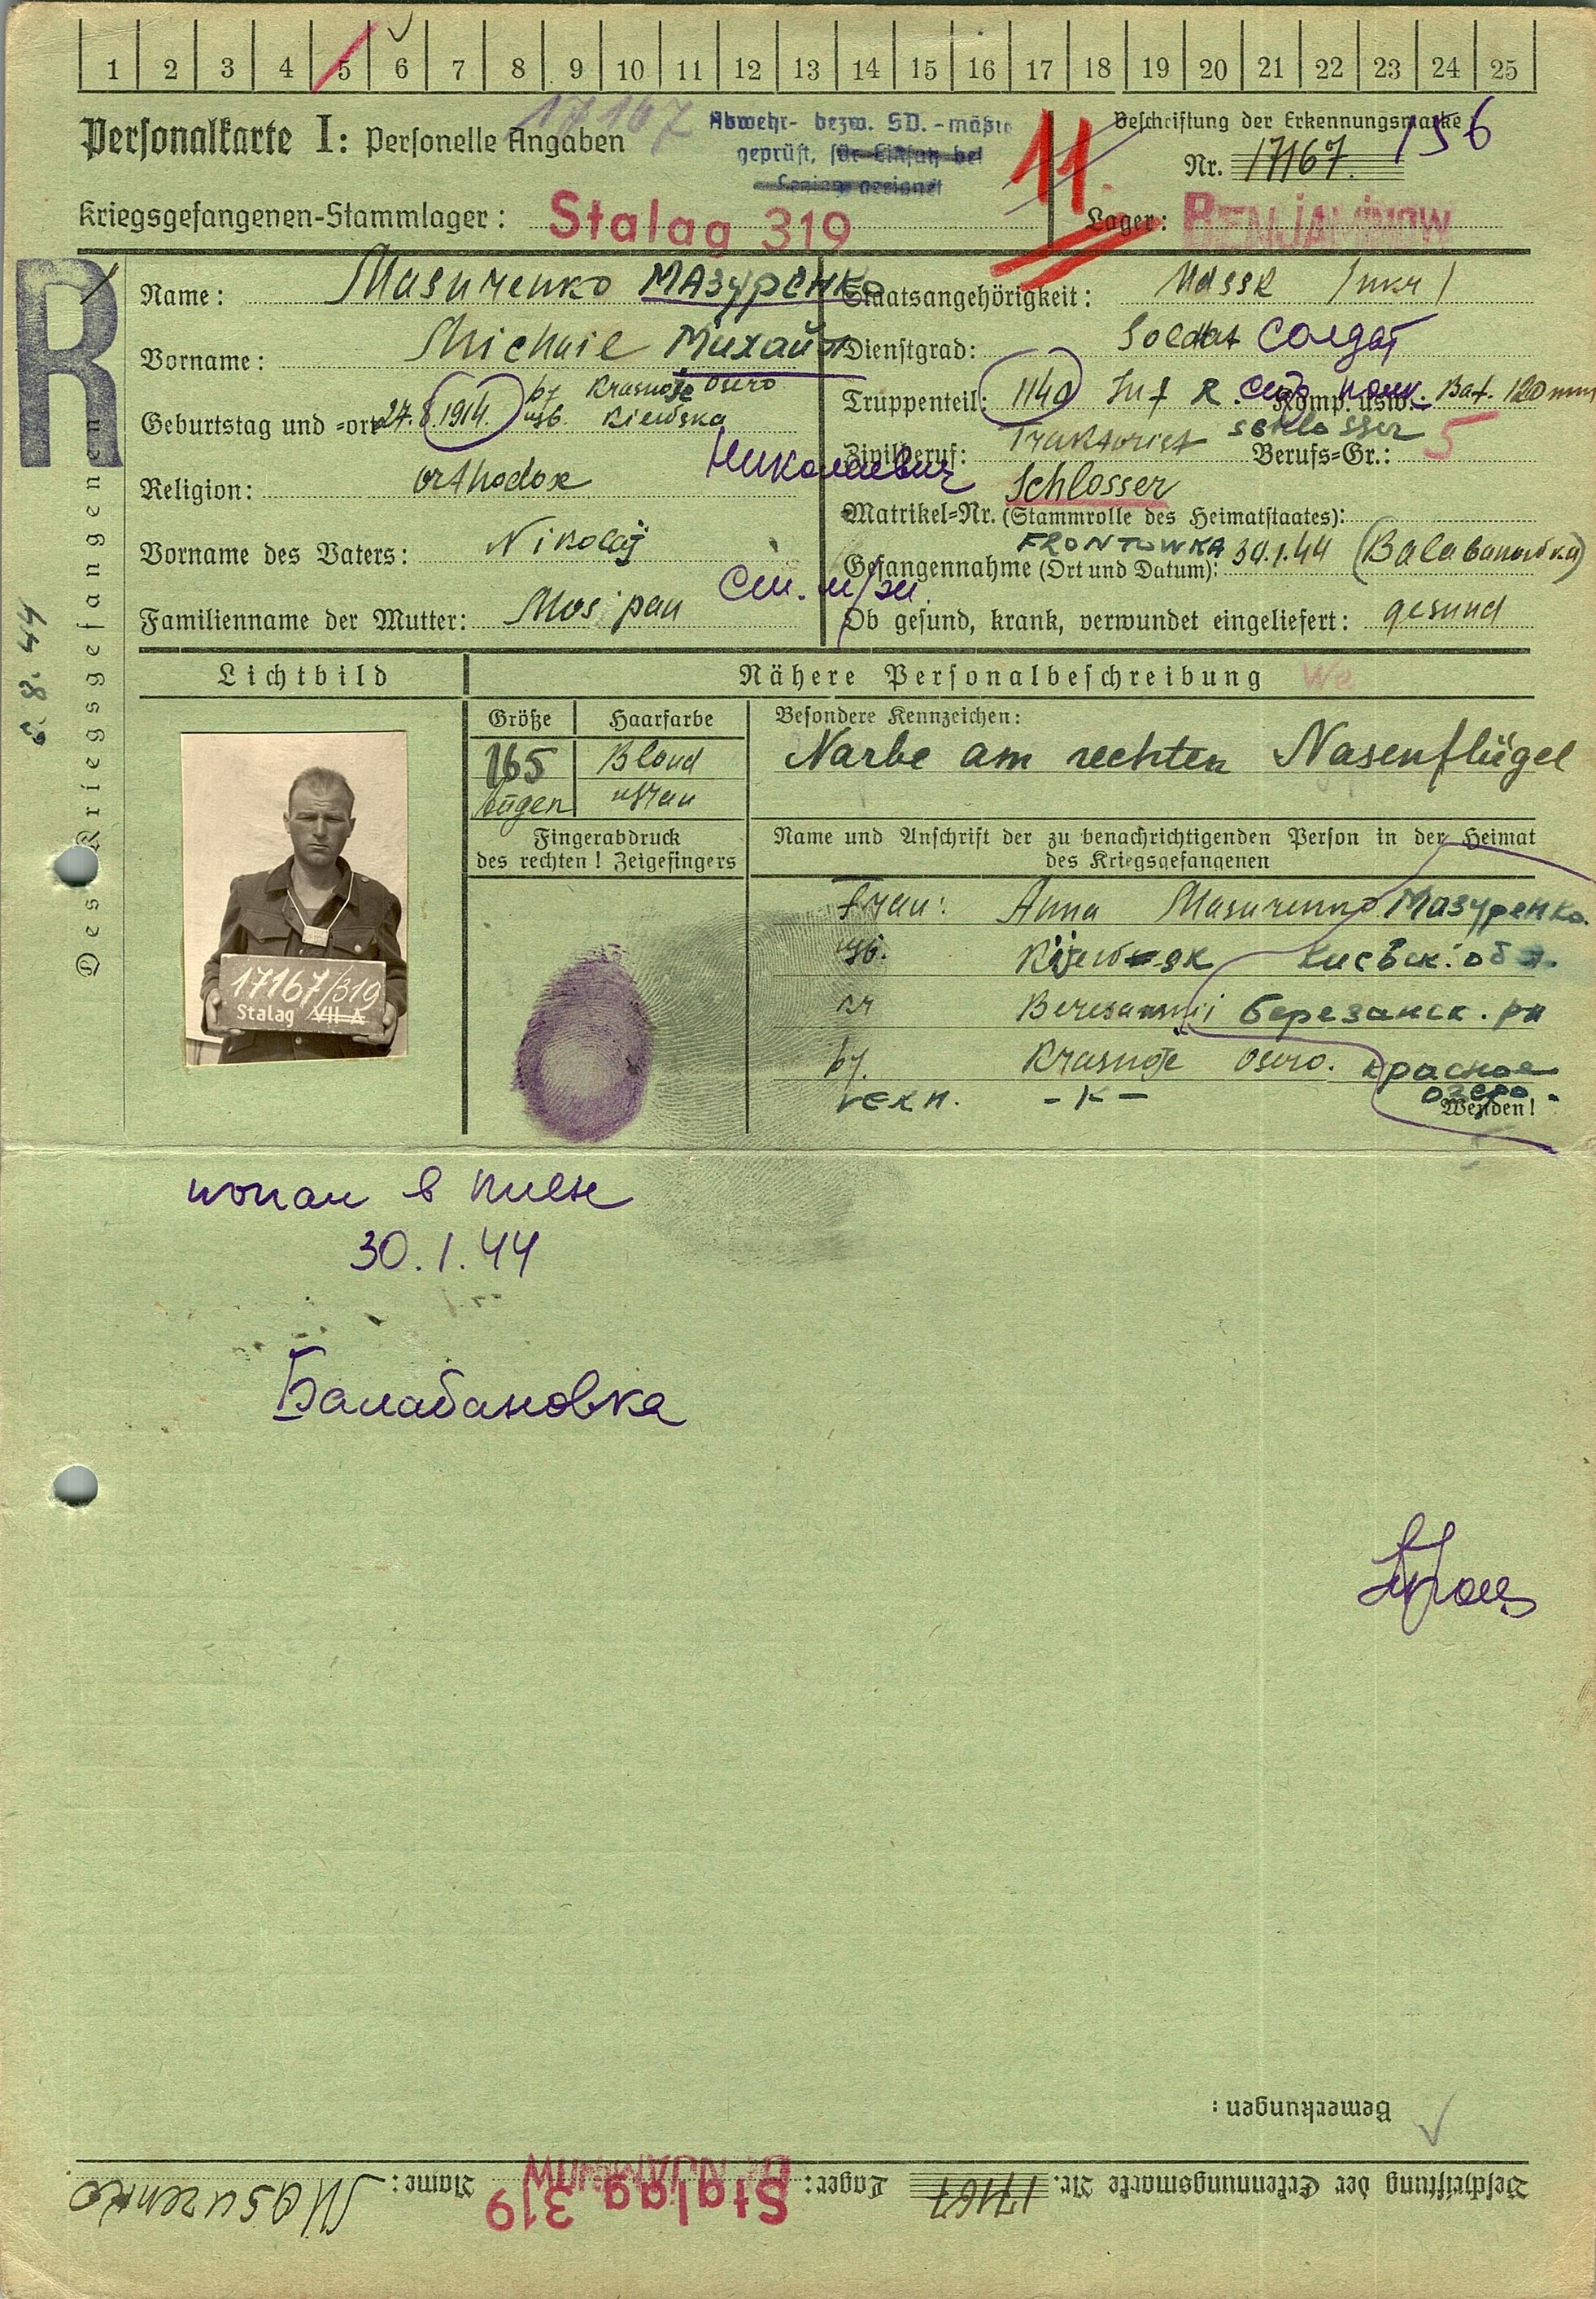 1 2 3 4 5 6 7 8 9 10 11 12 13 14 15 16 17 18 19 20 21 22 23 24 25
17167
Personalkarte I: Personelle Angaben
Abwehr- bezw. SD.-mäßig
geprüft, für Einsatz bei
geeignet
11
Beschriftung der Erkennungsmarke
156
Nr. 17167.
Kriegsgefangenen-Stammlager: Stalag 319
Lager: BENJAMINOW
R
Des Kriegsgefangenen
8. 44
Name: Masurenko МАЗУРЕНКО
Vorname: Michail Михаил
Geburtstag und =ort 27.8.1914. Krasnoje Osero
Kiewska
Religion: orthodox
Николаевич
Vorname des Vaters: Nikolaj
Familienname der Mutter: Mosipan
Staatsangehörigkeit: UdSSR /ukr/
Dienstgrad: Soldat Солдат
Truppenteil: 1140 Inf R. Komp. usw.: Bat. 120 mm
Zivilberuf: Traktorist Schlosser Berufs=Gr.: 5
Schlosser
Matrikel=Nr. (Stammrolle des Heimatstaates):
FRONTOWKA 30.1.44 (Balabanowka)
Gefangennahme (Ort und Datum):
Ob gesund, krank, verwundet eingeliefert: gesund
Lichtbild
Nähere Personalbeschreibung We
Größe Haarfarbe
165 Blond
Augen
Besondere Kennzeichen:
Narbe am rechten Nasenflügel
17167/319
Stalag VII A
Fingerabdruck
des rechten! Zeigefingers
Name und Anschrift der zu benachrichtigenden Person in der Heimat
des Kriegsgefangenen
Frau: Anna Masurenko Мазуренко.
Kijewsk Киевск. обл.
Beresanskii березанск. рн
Krasnoje Osero. красное
озеро.
- к -
Wenden!
попал в плен
30.1.44
Балабановка
Bemerkungen:
Beschriftung der Erkennungsmarke Nr. 17167 Lager: Stalag 319 BENJAMINOW Name: Masurenko